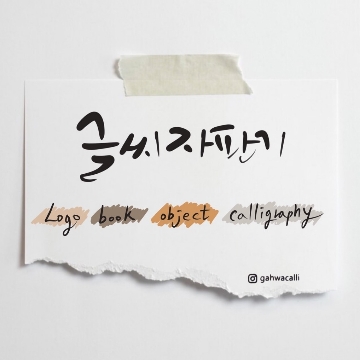 글씨자판기
Logo book object calligraphy
gahwacalli